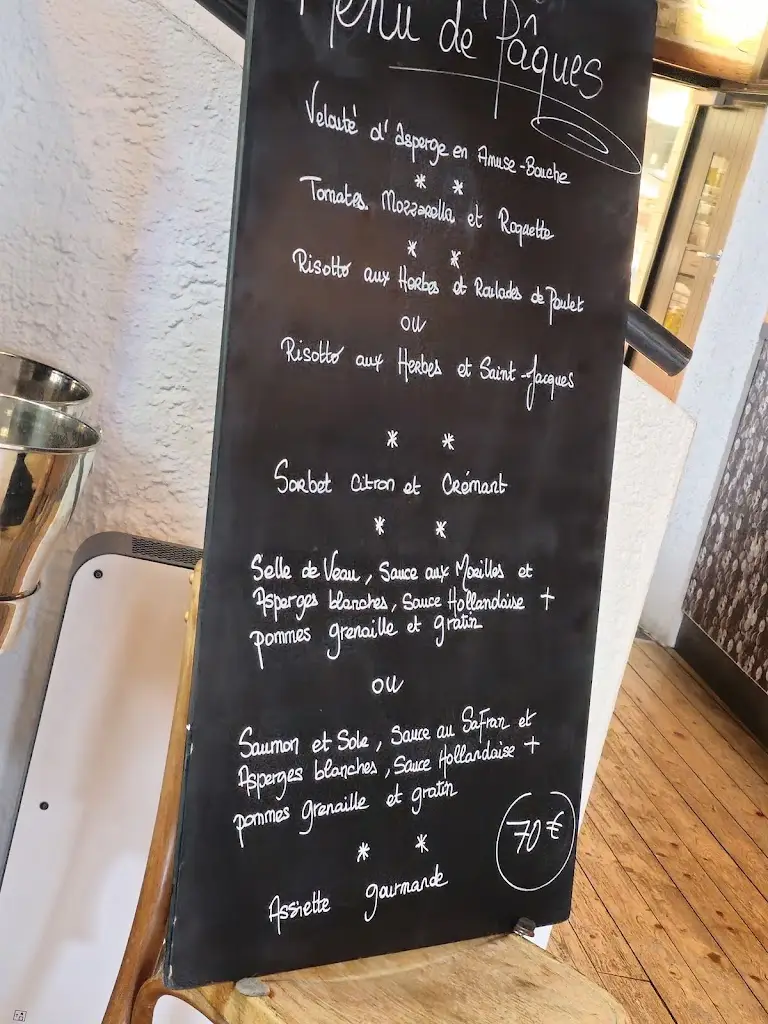 Menu de Pâques
Velouté d'Asperge en Amuse-Bouche
* *
Tomates, Mozzarella et Roquette
* *
Risotto aux Herbes et Roulades de Poulet
ou
Risotto aux Herbes et Saint-Jacques
* *
Sorbet Citron et Crémant
* *
Selle de Veau, Sauce aux Morilles et
Asperges blanches, Sauce Hollandaise +
pommes grenaille et gratin
ou
Saumon et Sole, Sauce au Safran et
Asperges blanches, Sauce Hollandaise +
pommes grenaille et gratin
70€
* *
Assiette gourmande